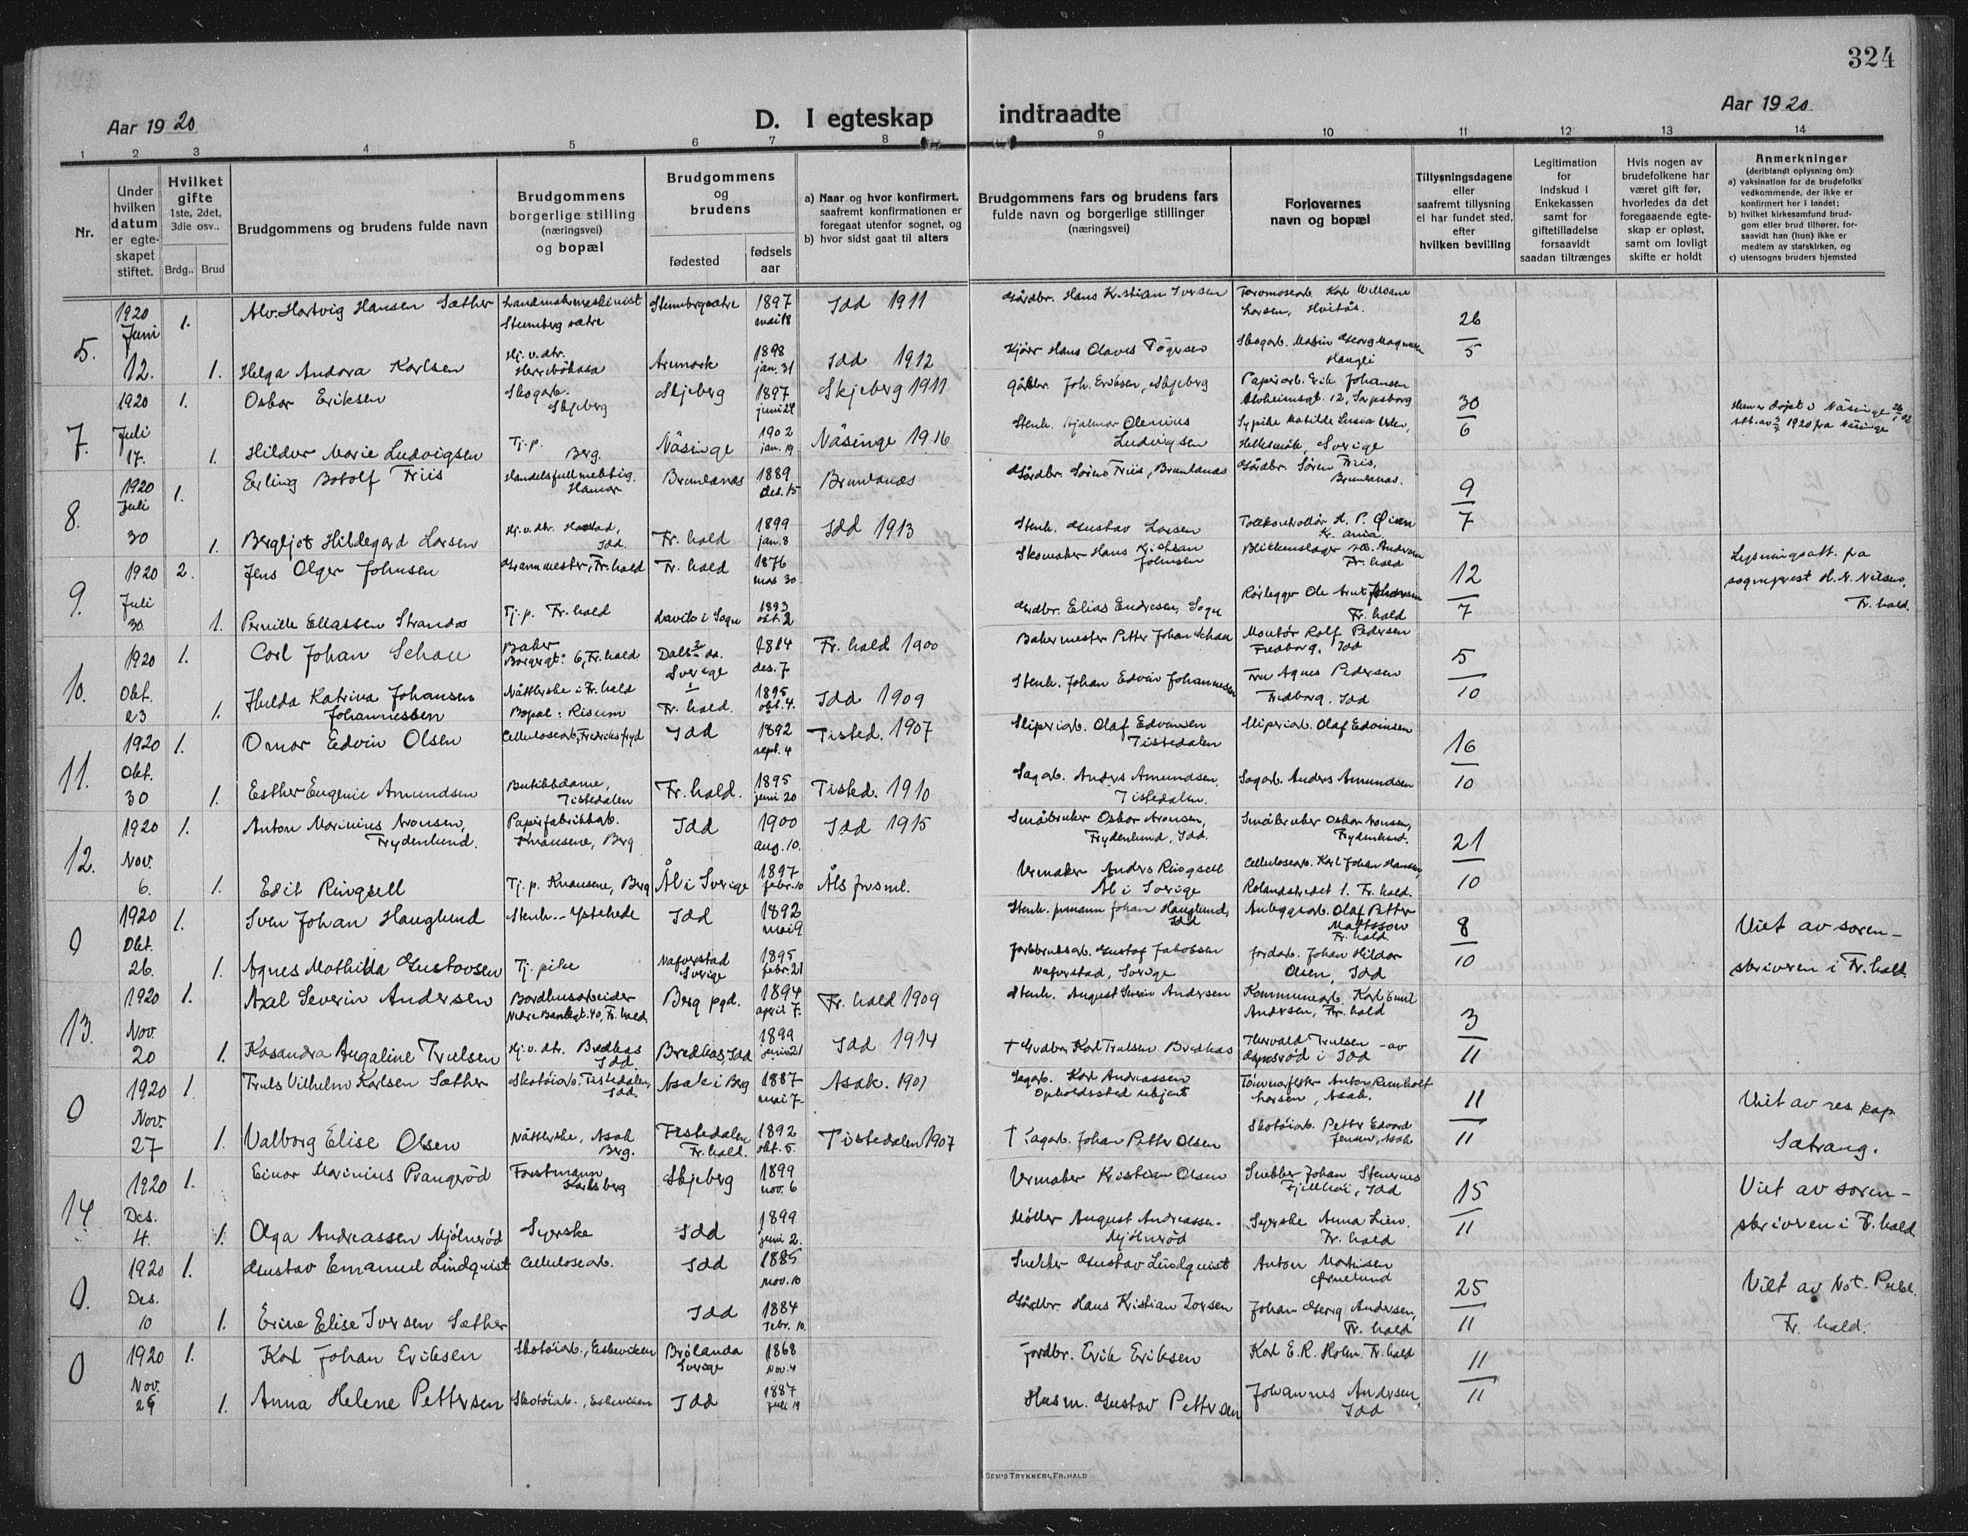 324
Aar 1920
D. I egteskap indtraadte
Aar 1920
1 2 3 4 5 6 7 8 9 10 11 12 13 14
Nr.
Under hvilken datum er egteskapet stiftet.
Hvilket gifte
1ste, 2det, 3die osv..
Brdg.. Brud
Brudgommens og brudens fulde navn
Brudgommens borgerlige stilling (næringsvei) og bopæl
Brudgommens og brudens
fødested
fødsels aar
a) Naar og hvor konfirmert, saafremt konfirmationen er foregaat utenfor sognet, og
b) hvor sidst gaat til alters
Brudgommens fars og brudens fars fulde navn og borgerlige stillinger (næringsvei)
Forlovernes navn og bopæl
Tillysningsdagene eller saafremt tillysning ei har fundet sted, efter hvilken bevilling
Legitimation for indskud i Enkekassen samt for giftetilladelse forsaavidt saadan tiltrænges
Hvis nogen av brudefolkene har været gift før, hvorledes da det foregaaende egteskap er opløst, samt om lovligt skifte er holdt
Anmerkninger
(deriblandt oplysning om):
a) vaksination for de brudefolks vedkommende, der ikke er konfirmert her i landet;
b) hvilket kirkesamfund brudgom eller brud tilhører, forsaavidt han (hun) ikke er medlem av statskirken, og
c) utensogns bruders hjemsted
5. 1920 Juni 12.
1. Alv. Hartvig Hansen Sæther
1897 mai 18
Idd 1911
Gårdbr. Hans Kristian Iversen
26/5
1. Helga Andora Karlsen
Aremark
1898 jan. 31
Idd 1912
7. 1920 Juli 17.
1. Oskar Eriksen
Skogarb. Skjeberg
Skjeberg
1897 juni 24
Skjeberg 1911
Gårdbr. Joh. Eriksen, Skjeberg
Papirarb. Erik Johansen
Alvheimsgt. 12, Sarpsborg
30/6
1. Hildur Marie Ludvigsen
Tj. p. Berg.
Näsinge
1902 jan. 19
Näsinge 1916
Stenh. Hjalmar Olenius Ludvigsen
8. 1920 Juli 30
1. Erling Botolf Friis
Handelsfullmektig, Hamar
Brunlanes
1889 des. 15
Brunlanes
Gårdbr. Søren Friis, Brunlanes
Gårdbr. Søren Friis, Brunlanes.
9/7
1. Bergljot Hildegard Larsen
Fr. hald
1899 jan. 8
Idd 1913
Stenh. Gustav Larsen
9. 1920 Juli 30.
2. Jens Olger Johnsen
Fr. hald
1876 mas 30
Skomaker Hans Kristian Johnsen
12/7
Lysningsatt. fra sogneprest H. N. Nilsen, Fr. hald.
1. Pernille Eliassen Strandos
Tj. p. Fr. hald
1893 okt. 2
Gårdbr. Elias Endresen, Sogn
Fr. hald
10. 1920 Okt 23
1. Carl Johan Schau
Baker Borgergt. 6, Fr. hald
Sverige
1884 des. 7
Fr. hald 1900
Bakermester Petter Johan Schau
Montør Rolf Pedersen
Fredborg, Idd
5/10
1. Hulda Katrina Johansen Johannessen
Nåtlerske i Fr. hald
Bopæl: Risum
Fr. hald.
1895 okt. 4.
Idd 1909
Stenh. Johan Edvin Johannesen
Fru Agnes Pedersen
Fredborg, Idd
11. 1920 Okt. 30
1. Omar Edvin Olsen
Idd
1892 sept. 4
Tisted. 1907
Sliperiarb. Olaf Edvinsen
Tistedalen
Sliperiarb. Olaf Edvinsen
16/10
1. Esther Eugenie Amundsen
Butikkdame, Tistedalen
Fr. hald.
1895 juni 20
Tisted. 1910
Sagarb. Anders Amundsen, Tistedalen.
Sagarb. Anders Amundsen
12. 1920 Nov. 6.
1. Anton Marinius Aronsen, Frydenlund.
Papirfabrikkarb. Knausene, Berg
Idd
1900 aug. 10.
Idd 1915
Småbruker Oskar Aronsen, Frydenlund, Idd.
Småbruker Oskar Aronsen, Frydenlund.
21/10
1. Edit Ringsell
Tj. p. Knausene, Berg
Ål i Sverige
1897 febr. 10
Urmaker Anders Ringsell
Ål i Sverige
Cellulosearb. Karl Johan Hansen, Rolandstredet 1. Fr. hald.
0 1920 Okt. 26.
1. Sven Johan Hauglund
Stenh. Ystehede
Idd
1892 mai 9
Stenh. formann Johan Hauglund, Idd
Anleggsarb. Olaf Petter Mattsson Fr. hald.
8/10
Viet av sorenskriveren i Fr. hald
1. Agnes Mathilda Gustavsen
Tj. pike
Naverstad Sverige
1895 febr. 21
Jordbruksarb. Gustaf Jakobsen
Naverstad, Sverige
Jordarb. Johan Hildar Olsen, Idd
13. 1920 Nov. 20
1. Axel Severin Andersen
Nedre Bankgt. 40, Fr. hald.
Berg pgd.
1894 april 7.
Fr. hald 1909
Stenh. August Severin Andersen
Kommunearb. Karl Emil Andersen, Fr. hald
3/11
1. Kasandra Angaline Trulsen
Hj. v. dtr. Bredkas Idd.
Bredkas, Idd
1899 juni 21
Idd 1914
† Gruvarb. Karl Trulsen Bredkas
Thorvald Trulsen
0 1920 Nov. 27
1. Truls Vilhelm Karlsen Sæther
Skotøiarb. Tistedalen, Idd.
Asak i Berg
1887 mai 7
Asak. 1901
Sagarb. Karl Andreassen
Opholdssted ukjent
Tømmerfløter Anton Reinholt Larsen, Asak.
11/11
Viet av res. kap. Sætrang.
1. Valborg Elise Olsen
Nåtlerske, Asak Berg.
Tistedalen Fr. hald.
1892 okt. 5.
Tistedalen 1907
† Sagarb. Johan Petter Olsen
Skotøiarb. Petter Edvard Jensen, Asak
14. 1920 Des. 4.
1. Einar Marinius Prangerød
Forstmann Karlsberg
Skjeberg
1899 nov. 6
Urmaker Kristian Olsen
Snekker Johan Stenernes Fjellhei, Idd
15/11
Viet av sorenskriveren i Fr. hald
1. Olga Andreassen Mjølnerød
Syerske
Idd
1899 juni 2.
Møller August Andreassen. Mjølnerød
Syerske Anna Lien. Fr. hald
0. 1920 Des. 10
1. Gustav Emanuel Lindquist
Cellulosearb.
Idd
1885 nov. 10
Snekker Gustav Lindquist
Anton Martinsen Ørnelund
25/11
Viet av Not. Publ. Fr. hald.
1. Erine Elise Iversen Sæther
Idd
1884 febr. 10.
Gårdbr. Hans Kristian Iversen
Johan Georg Andersen, Fr. hald
0 1920 Nov. 29
1. Karl Johan Eriksen
Skotøiarb., Eskeviken
Brålanda Sverige
1868 Nov. 4
Jordbr. Erik Eriksen
Karl E. R. Holm. Fr. hald
11/11
1. Anna Helene Pettersen
Skotøiarb., Eskeviken
Idd
1887 juli 19
Husm. Gustav Pettersen
Johannes Andersen, Idd
SEM'S TRYKKERI, FR.HALD